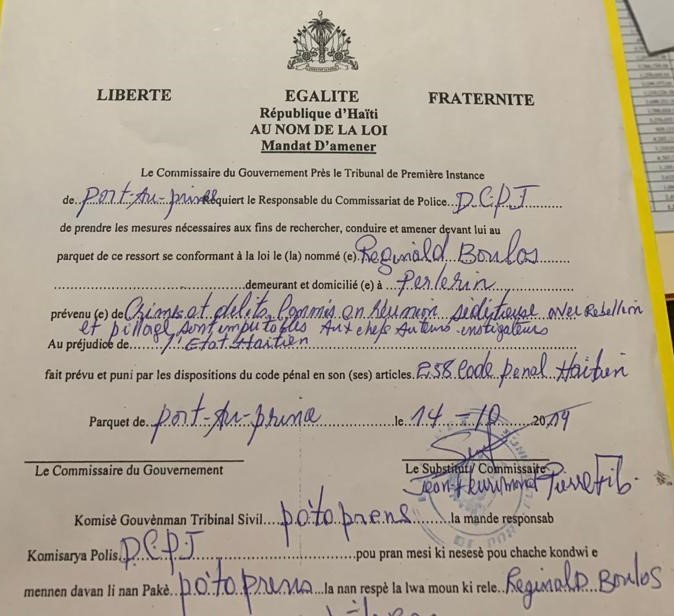 LIBERTE EGALITE FRATERNITE
République d'Haïti
AU NOM DE LA LOI
Mandat D'amener
Le Commissaire du Gouvernement Près le Tribunal de Première Instance
de Port-Au-prince requiert le Responsable du Commissariat de Police D.C.P.J
de prendre les mesures nécessaires aux fins de rechercher, conduire et amener devant lui au
parquet de ce ressort se conformant à la loi le (la) nommé (e) Reginald Boulos
demeurant et domicilié (e) à Perlerin
prévenu (e) de Crimes et delits Commis en Reunion séditieuse avec Rebellion
et pillage sont imputables Aux chefs Auteurs instigateurs
Au préjudice de l'Etat Haitien
fait prévu et puni par les dispositions du code pénal en son (ses) articles 238 Code penal Haitien
Parquet de Port-Au-prince le 14-10 2019
Le Commissaire du Gouvernement Le Substitut/ Commissaire
Jean Pierre Fils
Komisè Gouvènman Tribinal Sivil pòtoprens la mande responsab
Komisarya Polis D.C.P.J pou pran mesi ki nesesè pou chache kondwi e
mennen davan li nan Pakè pòtoprens la nan respè la lwa moun ki rele Reginald Boulos